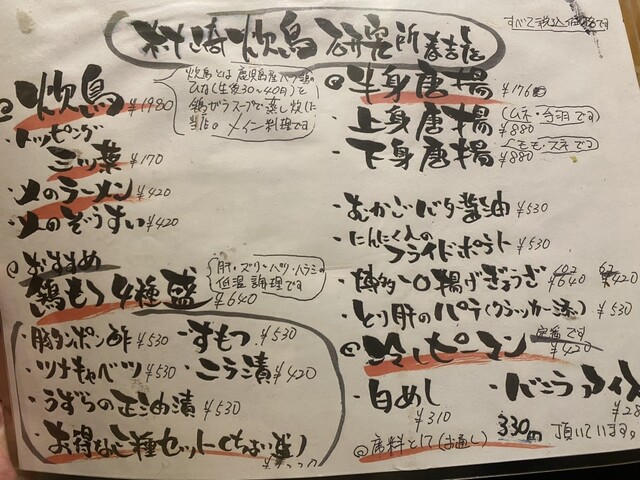 炊鳥研究所 春吉店
すべて税込価格です
炊鳥 ¥1980
炊鳥とは鹿児島産ハーブ鶏の
ひな(生後30〜40日)を
鶏ガラスープで蒸し炊いた
当店のメイン料理です
・トッピング
三ツ葉 ¥170
・〆のラーメン ¥420
・〆のぞうすい ¥420
◎おすすめ
鶏もつ4種盛 ¥640
肝・ズリ・ハツ・ハラミの
低温調理です
・豚タンポン酢 ¥530
・すもつ ¥530
・ツナキャベツ ¥530
・ニラ漬 ¥420
・うずらの正油漬 ¥530
・お得な二種セット(ちょい盛)
◎半身唐揚 ¥1760
・上身唐揚 (ムネ・手羽です) ¥880
・下身唐揚 (モモ・スネです) ¥880
・むかごバタ醤油 ¥530
・にんにく入の
フライドポテト ¥530
・博多一口揚げぎょうざ ¥640 ¥420
・とり肝のパテ(クラッカー添) ¥530
◎冷しピーマン 定番です ¥420
・白めし ¥310
・バニラアイス
◎席料として(お通し) 330円 頂いています。